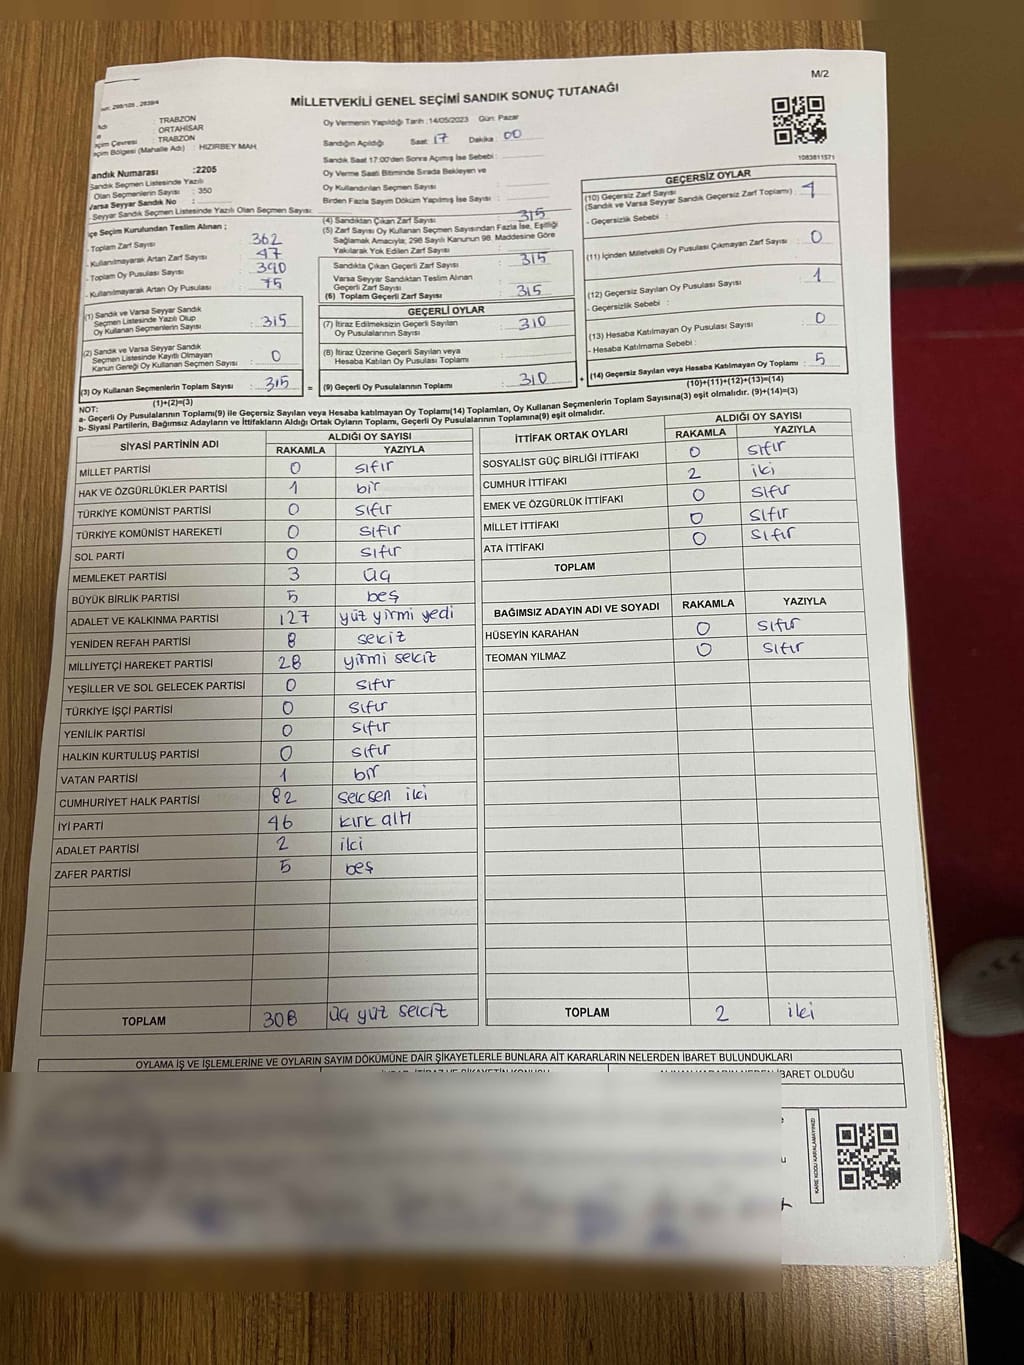 M/2
MİLLETVEKİLİ GENEL SEÇİMİ SANDIK SONUÇ TUTANAĞI
: TRABZON
: ORTAHİSAR
Seçim Çevresi : TRABZON
Seçim Bölgesi (Mahalle Adı) : HIZIRBEY MAH.
Sandık Numarası :2205
Sandık Seçmen Listesinde Yazılı
Olan Seçmenlerin Sayısı : 350
Varsa Seyyar Sandık No :
Seyyar Sandık Seçmen Listesinde Yazılı Olan Seçmen Sayısı:
İlçe Seçim Kurulundan Teslim Alınan ;
- Toplam Zarf Sayısı : 362
- Kullanılmayarak Artan Zarf Sayısı : 47
- Toplam Oy Pusulası Sayısı : 390
- Kullanılmayarak Artan Oy Pusulası : 75
(1) Sandık ve Varsa Seyyar Sandık
Seçmen Listesinde Yazılı Olup
Oy Kullanan Seçmenlerin Sayısı : 315
(2) Sandık ve Varsa Seyyar Sandık
Seçmen Listesinde Kayıtlı Olmayan
Kanun Gereği Oy Kullanan Seçmen Sayısı : 0
(3) Oy Kullanan Seçmenlerin Toplam Sayısı : 315 =
(1)+(2)=(3)
Oy Vermenin Yapıldığı Tarih :14/05/2023 Gün: Pazar
Sandığın Açıldığı Saat: 17 Dakika : 00
Sandık Saat 17:00'den Sonra Açımış İse Sebebi :
Oy Verme Saati Bitiminde Sırada Bekleyen ve
Oy Kullandırılan Seçmen Sayısı :
Birden Fazla Sayım Döküm Yapılmış İse Sayısı :
(4) Sandıktan Çıkan Zarf Sayısı : 315
(5) Zarf Sayısı Oy Kullanan Seçmen Sayısından Fazla İse, Eşitliği
Sağlamak Amacıyla; 298 Sayılı Kanunun 98. Maddesine Göre
Yakılarak Yok Edilen Zarf Sayısı :
Sandıkta Çıkan Geçerli Zarf Sayısı : 315
Varsa Seyyar Sandıktan Teslim Alınan
Geçerli Zarf Sayısı :
(6) Toplam Geçerli Zarf Sayısı : 315
GEÇERLİ OYLAR
(7) İtiraz Edilmeksizin Geçerli Sayılan
Oy Pusulalarının Sayısı : 310
(8) İtiraz Üzerine Geçerli Sayılan veya
Hesaba Katılan Oy Pusulası Toplamı :
(9) Geçerli Oy Pusulalarının Toplamı : 310 +
1083811571
GEÇERSİZ OYLAR
(10) Geçersiz Zarf Sayısı
(Sandık ve Varsa Seyyar Sandık Geçersiz Zarf Toplamı) : 4
- Geçersizlik Sebebi :
(11) İçinden Milletvekili Oy Pusulası Çıkmayan Zarf Sayısı : 0
(12) Geçersiz Sayılan Oy Pusulası Sayısı : 1
- Geçersizlik Sebebi :
(13) Hesaba Katılmayan Oy Pusulası Sayısı : 0
- Hesaba Katılmama Sebebi :
(14) Geçersiz Sayılan veya Hesaba Katılmayan Oy Toplamı : 5
(10)+(11)+(12)+(13)=(14)
NOT:
a- Geçerli Oy Pusulalarının Toplamı(9) ile Geçersiz Sayılan veya Hesaba katılmayan Oy Toplamı(14) Toplamları, Oy Kullanan Seçmenlerin Toplam Sayısına(3) eşit olmalıdır. (9)+(14)=(3)
b- Siyasi Partilerin, Bağımsız Adayların ve İttifakların Aldığı Ortak Oyların Toplamı, Geçerli Oy Pusulalarının Toplamına(9) eşit olmalıdır.
SİYASİ PARTİNİN ADI ALDIĞI OY SAYISI
RAKAMLA YAZIYLA
MİLLET PARTİSİ 0 sıfır
HAK VE ÖZGÜRLÜKLER PARTİSİ 1 bir
TÜRKİYE KOMÜNİST PARTİSİ 0 sıfır
TÜRKİYE KOMÜNİST HAREKETİ 0 sıfır
SOL PARTİ 0 sıfır
MEMLEKET PARTİSİ 3 üç
BÜYÜK BİRLİK PARTİSİ 5 beş
ADALET VE KALKINMA PARTİSİ 127 yüz yirmi yedi
YENİDEN REFAH PARTİSİ 8 sekiz
MİLLİYETÇİ HAREKET PARTİSİ 28 yirmi sekiz
YEŞİLLER VE SOL GELECEK PARTİSİ 0 sıfır
TÜRKİYE İŞÇİ PARTİSİ 0 sıfır
YENİLİK PARTİSİ 0 sıfır
HALKIN KURTULUŞ PARTİSİ 0 sıfır
VATAN PARTİSİ 1 bir
CUMHURİYET HALK PARTİSİ 82 seksen iki
İYİ PARTİ 46 kırk altı
ADALET PARTİSİ 2 iki
ZAFER PARTİSİ 5 beş
TOPLAM 308 üç yüz sekiz
İTTİFAK ORTAK OYLARI ALDIĞI OY SAYISI
RAKAMLA YAZIYLA
SOSYALİST GÜÇ BİRLİĞİ İTTİFAKI 0 sıfır
CUMHUR İTTİFAKI 2 iki
EMEK VE ÖZGÜRLÜK İTTİFAKI 0 sıfır
MİLLET İTTİFAKI 0 sıfır
ATA İTTİFAKI 0 sıfır
TOPLAM
BAĞIMSIZ ADAYIN ADI VE SOYADI RAKAMLA YAZIYLA
HÜSEYİN KARAHAN 0 sıfır
TEOMAN YILMAZ 0 sıfır
TOPLAM 2 iki
OYLAMA İŞ VE İŞLEMLERİNE VE OYLARIN SAYIM DÖKÜMÜNE DAİR ŞİKAYETLERLE BUNLARA AİT KARARLARIN NELERDEN İBARET BULUNDUKLARI
İBARET OLDUĞU
KARE KODU KARALAMAYINIZ!